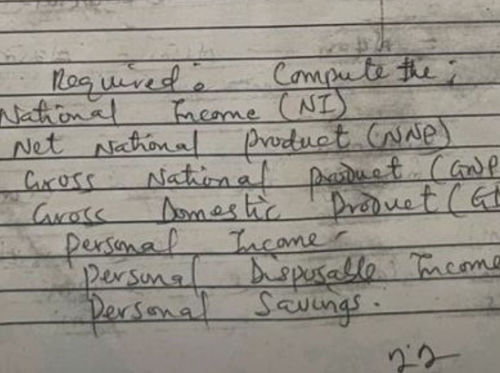 Required: Compute the;
National Income (NI)
Net National product (NNP)
Gross National product (GNP
Gross Domestic Product (G
Personal Income
Personal Disposable Income
Personal Savings.
22